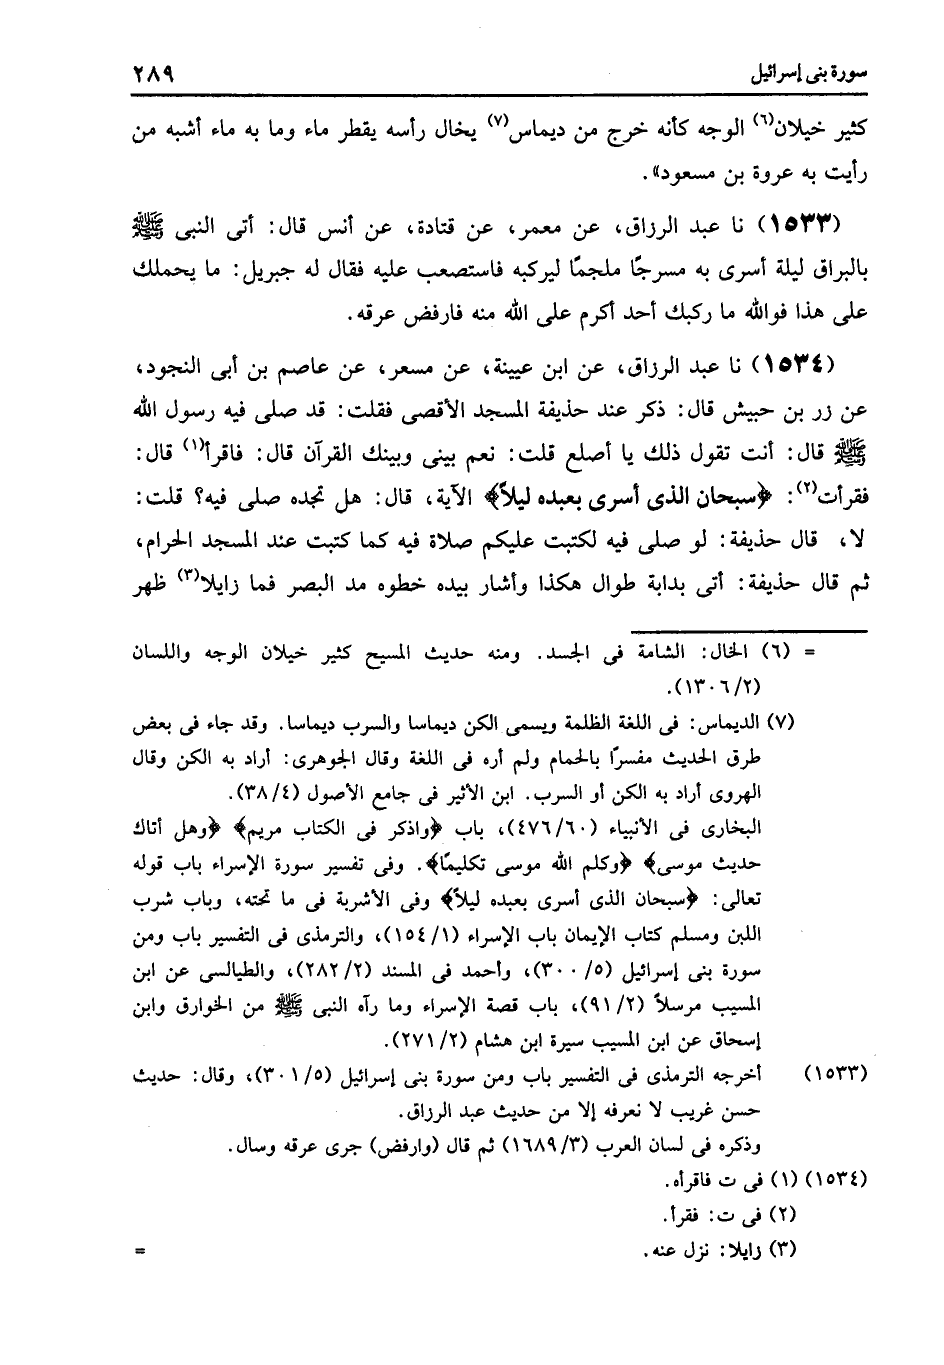 سورة بنى إسرائيل ٢٨٩
كثير خيلان(٦) الوجه كأنه خرج من ديماس(٧) يخال رأسه يقطر ماء وما به ماء أشبه من
رأيت به عروة بن مسعود».
(١٥٣٣) نا عبد الرزاق، عن معمر، عن قتادة، عن أنس قال: أتى النبى ﷺ
بالبراق ليلة أسرى به مسرجًا ملجمًا ليركبه فاستصعب عليه فقال له جبريل: ما يحملك
على هذا فوالله ما ركبك أحد أكرم على الله منه فارفض عرقه.
(١٥٣٤) نا عبد الرزاق، عن ابن عيينة، عن مسعر، عن عاصم بن أبى النجود،
عن زر بن حبيش قال: ذكر عند حذيفة المسجد الأقصى فقلت: قد صلى فيه رسول الله
ﷺ قال: أنت تقول ذلك يا أصلع قلت: نعم بينى وبينك القرآن قال: فاقرأ(١) قال:
فقرأت(٢): ﴿سبحان الذى أسرى بعبده ليلاً﴾ الآية، قال: هل تجده صلى فيه؟ قلت:
لا، قال حذيفة: لو صلى فيه لكتبت عليكم صلاة فيه كما كتبت عند المسجد الحرام،
ثم قال حذيفة: أتى بدابة طوال هكذا وأشار بيده خطوه مد البصر فما زايلا(٣) ظهر
= (٦) الخال: الشامة فى الجسد. ومنه حديث المسيح كثير خيلان الوجه واللسان
(١٣٠٦/٢).
(٧) الديماس: فى اللغة الظلمة ويسمى الكن ديماسا والسرب ديماسا. وقد جاء فى بعض
طرق الحديث مفسرًا بالحمام ولم أره فى اللغة وقال الجوهرى: أراد به الكن وقال
الهروى أراد به الكن أو السرب. ابن الأثير فى جامع الأصول (٣٨/٤).
البخارى فى الأنبياء (٤٧٦/٦٠)، باب ﴿واذكر فى الكتاب مريم﴾ ﴿وهل أتاك
حديث موسى﴾ ﴿وكلم الله موسى تكليمًا﴾. وفى تفسير سورة الإسراء باب قوله
تعالى: ﴿سبحان الذى أسرى بعبده ليلاً﴾ وفى الأشربة فى ما تحته، وباب شرب
اللبن ومسلم كتاب الإيمان باب الإسراء (١٥٤/١)، والترمذى فى التفسير باب ومن
سورة بنى إسرائيل (٣٠٠/٥)، وأحمد فى المسند (٢٨٢/٢)، والطيالسى عن ابن
المسيب مرسلاً (٩١/٢)، باب قصة الإسراء وما رآه النبى ﷺ من الخوارق وابن
إسحاق عن ابن المسيب سيرة ابن هشام (٢٧١/٢).
(١٥٣٣) أخرجه الترمذى فى التفسير باب ومن سورة بنى إسرائيل (٣٠١/٥)، وقال: حديث
حسن غريب لا نعرفه إلا من حديث عبد الرزاق.
وذكره فى لسان العرب (١٦٨٩/٣) ثم قال (وارفض) جرى عرقه وسال.
(١٥٣٤) (١) فى ت فاقرأه.
(٢) فى ت: فقرأ.
(٣) زايلا: نزل عنه. =